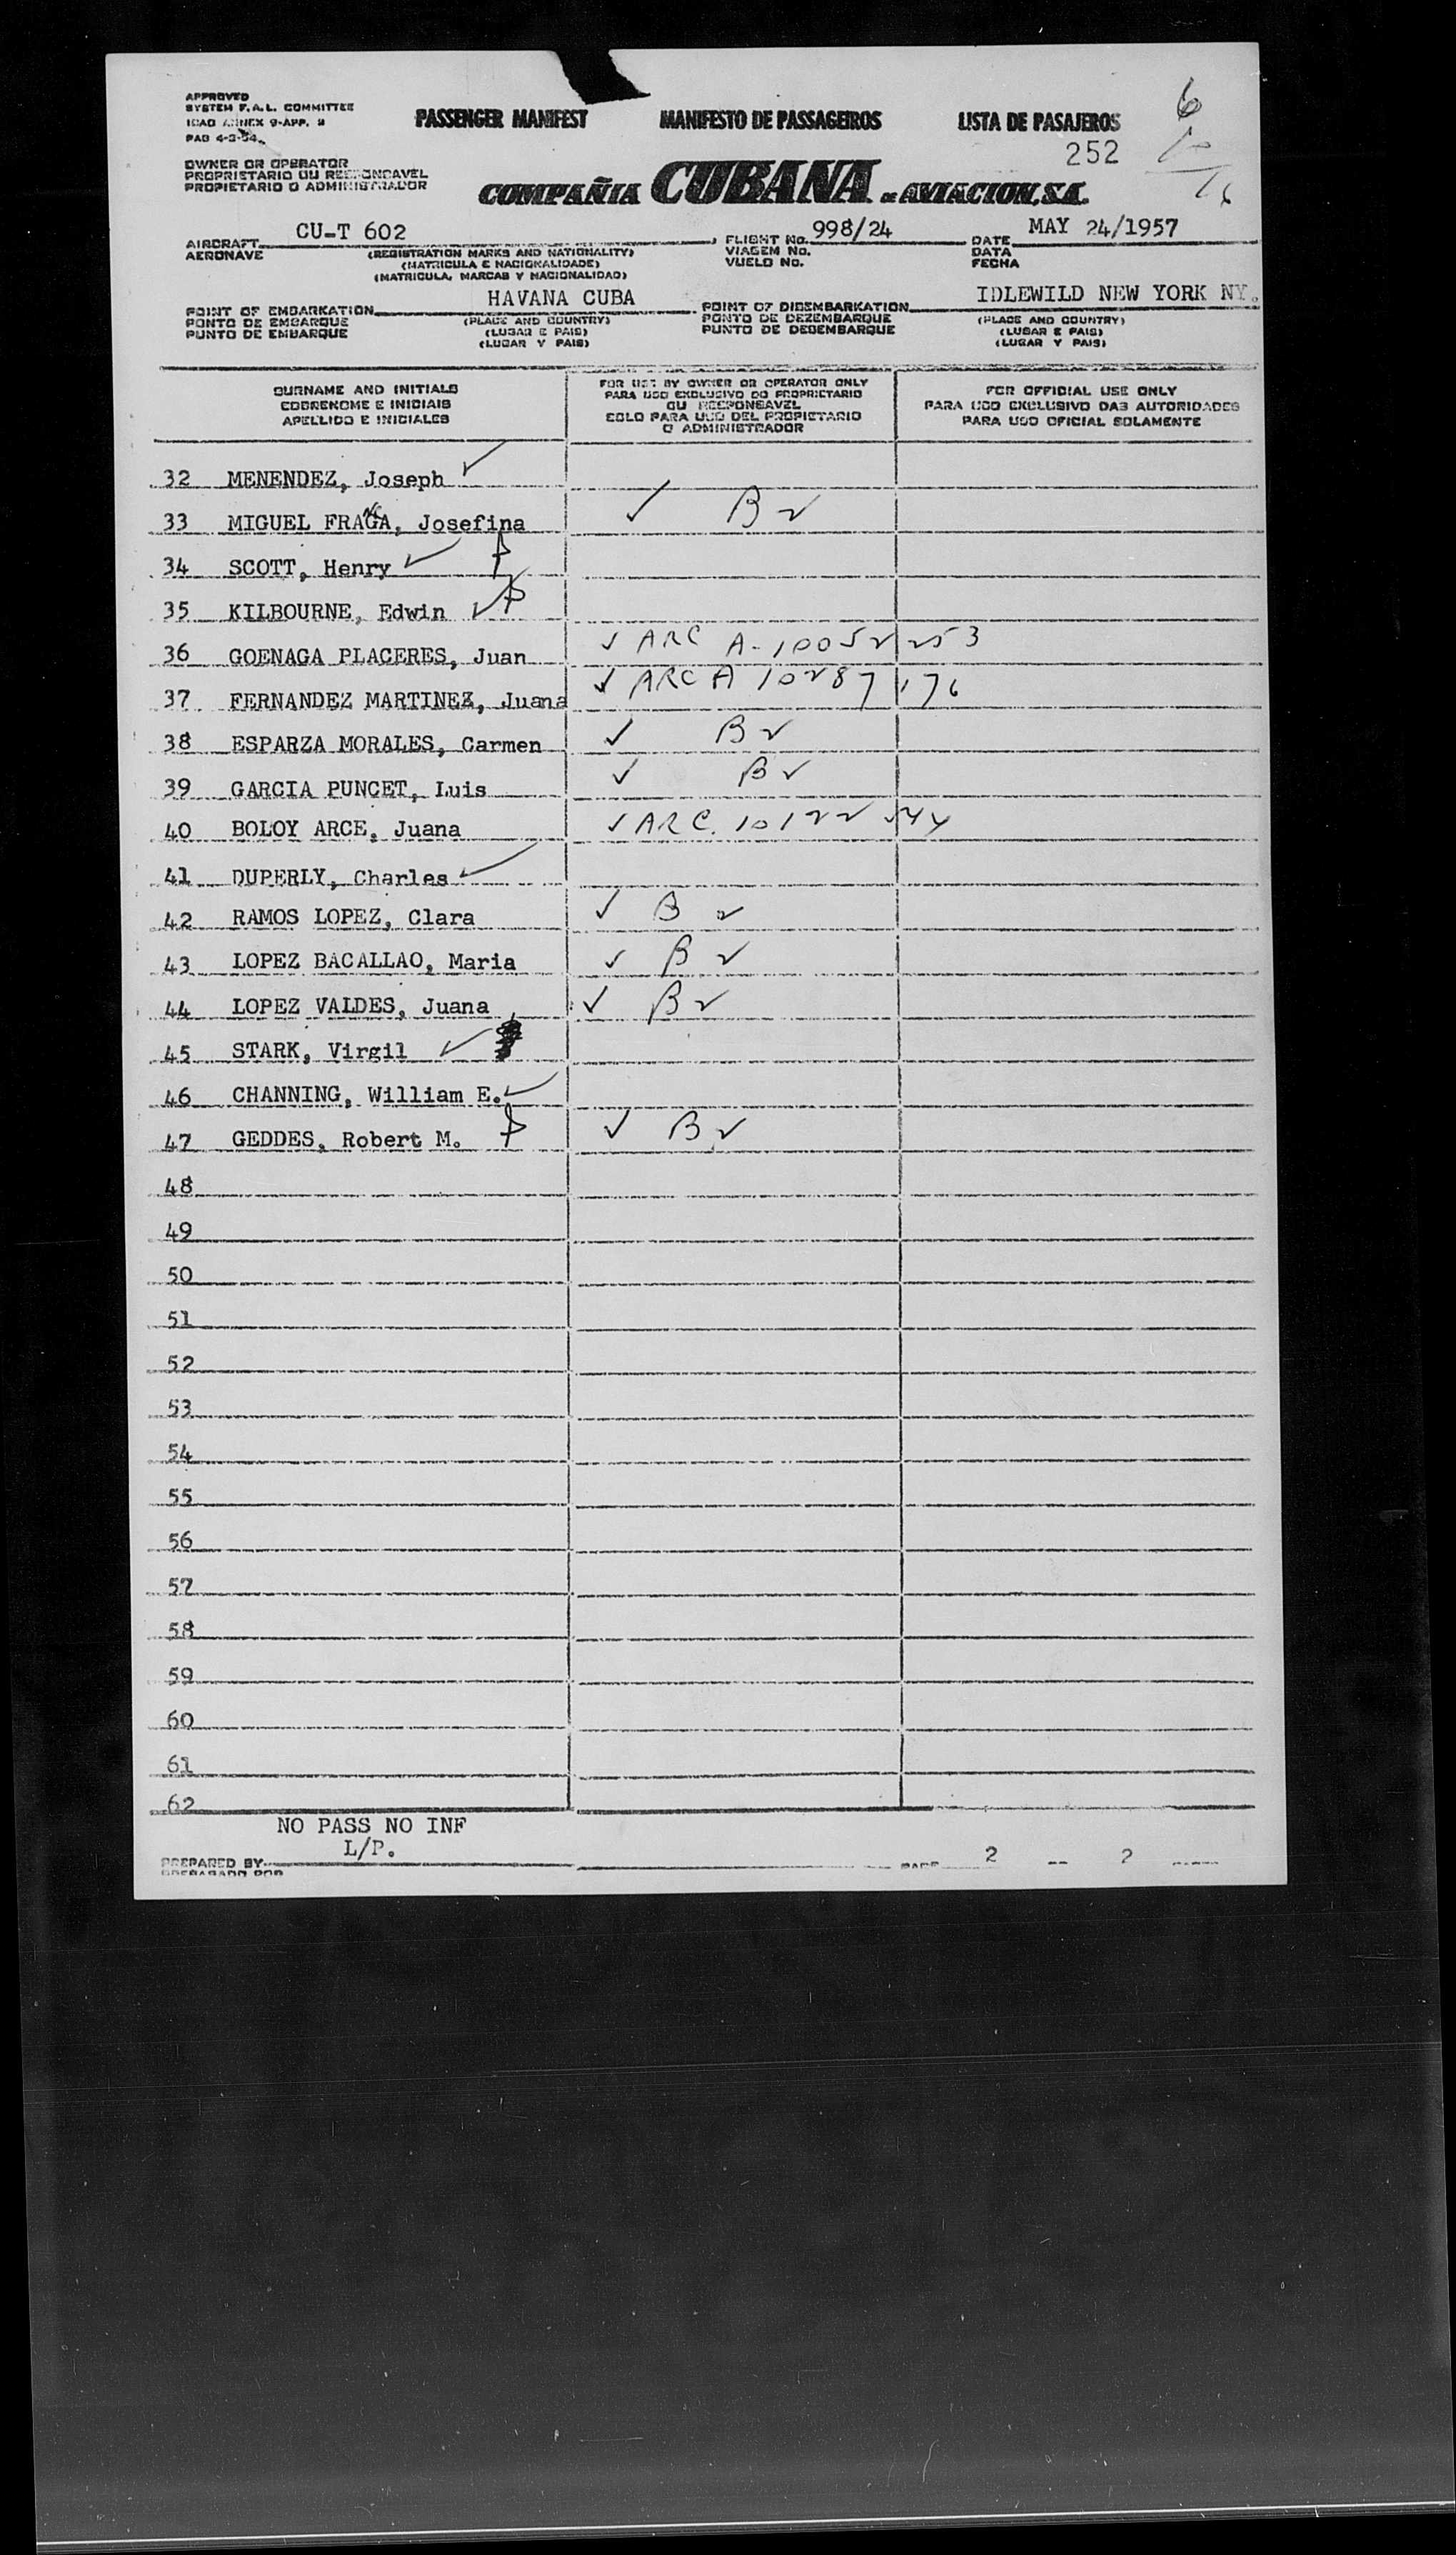 APPROVED
SYSTEM F.A.L. COMMITTEE
ICAO ANNEX 9-APP. 2
PAD 4-2-54
PASSENGER MANIFEST MANIFESTO DE PASSAGEIROS LISTA DE PASAJEROS
252
6
OWNER OR OPERATOR
PROPRIETARIO OU RESPONSAVEL
PROPIETARIO O ADMINISTRADOR
COMPAÑIA CUBANA DE AVIACION, S.A.
AIRCRAFT CU-T 602 FLIGHT No. 998/24 DATE MAY 24/1957
AERONAVE (REGISTRATION MARKS AND NATIONALITY) VIAGEM No. DATA
(MATRICULA E NACIONALIDADE) VUELO No. FECHA
(MATRICULA, MARCAS Y NACIONALIDAD)
POINT OF EMBARKATION HAVANA CUBA POINT OF DISEMBARKATION IDLEWILD NEW YORK NY.
PONTO DE EMBARQUE (PLACE AND COUNTRY) PONTO DE DEZEMBARQUE (PLACE AND COUNTRY)
PUNTO DE EMBARQUE (LUGAR E PAIS) PUNTO DE DESEMBARQUE (LUGAR E PAIS)
(LUGAR Y PAIS) (LUGAR Y PAIS)
SURNAME AND INITIALS
COBRENOME E INICIAIS
APELLIDO E INICIALES
FOR USE BY OWNER OR OPERATOR ONLY
PARA USO EXCLUSIVO DO PROPRIETARIO
OU RESPONSAVEL
SOLO PARA USO DEL PROPIETARIO
O ADMINISTRADOR
FOR OFFICIAL USE ONLY
PARA USO EXCLUSIVO DAS AUTORIDADES
PARA USO OFICIAL SOLAMENTE
32 MENENDEZ, Joseph ✓
33 MIGUEL FRAGA, Josefina ✓ B2
34 SCOTT, Henry ✓
35 KILBOURNE, Edwin ✓
36 GOENAGA PLACERES, Juan ✓ ARC A-10052253
37 FERNANDEZ MARTINEZ, Juana ✓ ARC A 10287176
38 ESPARZA MORALES, Carmen ✓ B2
39 GARCIA PUNCET, Luis ✓ B2
40 BOLOY ARCE, Juana ✓ ARC. 10122544
41 DUPERLY, Charles ✓
42 RAMOS LOPEZ, Clara ✓ B2
43 LOPEZ BACALLAO, Maria ✓ B2
44 LOPEZ VALDES, Juana ✓ B2
45 STARK, Virgil ✓
46 CHANNING, William E. ✓
47 GEDDES, Robert M. ✓ B2
48
49
50
51
52
53
54
55
56
57
58
59
60
61
62
NO PASS NO INF
L/P.
PREPARED BY PAGE 2 2
PREPARADO POR